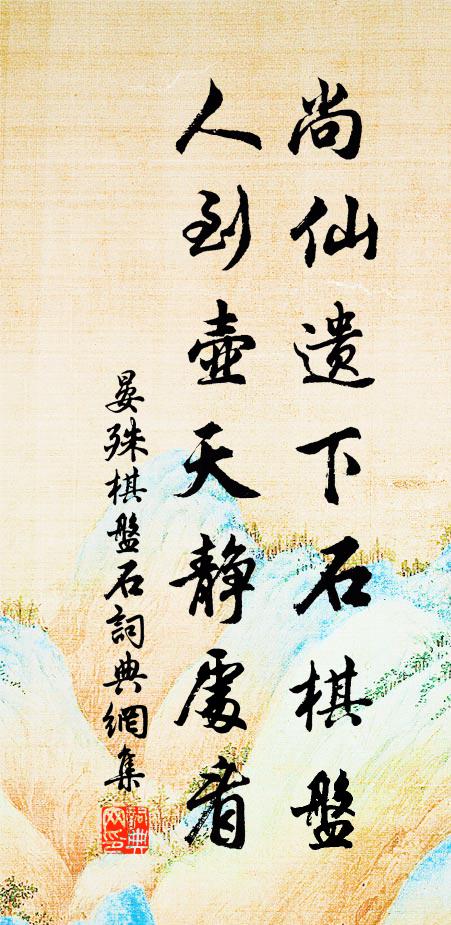 尚仙遗下石棋盤
人到壺天静處看
晏殊棋盤石詞典網集
詞典网印